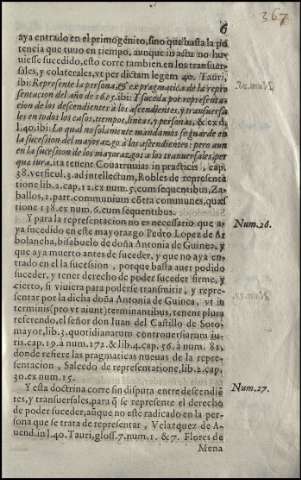 6
367
aya entrado en el primogénito, sino que basta la po
tencia que tuuo en tiempo, aunque in actu no hu
uiesse sucedido, esto corre tambien en los transuer
sales, y colaterales, vt per dictam legem 40. Tauri,
ibi: Represente la persona, & ex pragmatica de la repre
sentacion del año de 1605. ibi: Y suceda por representa
cion de los descendientes à los ascendientes, y transuersa
les en todos los casos, tiempo, lineas, y personas, & ex d. l.
40. ibi: Lo qual no solamente mandamos se guarde en
la sucesion del mayorazgo à los ascendientes: pero aun
en la sucesion de los mayorazgos à los transuersales, per
que iura, ita tenent Couarruuias in practicis, cap.
38. versicul. 3. ad intellectum, Robles de represent
tione lib. 2. cap. 12. ex num. 5. cum sequentibus, Za
ballos, 2. part. communium cõtra communes, quæs
tione 138. ex num. 6. cum sequentibus.
Y para la representacion no es necessario que a
ya sucedido en este mayorazgo Pedro Lopez de Re
bolancha, bisabuelo de doña Antonia de Guinea, y
que aya muerto antes de suceder, y que no aya en
trado en la sucession, porque basta auer podido
suceder, y tener derecho de poder suceder firme, y
cierto, si viuiera para poderse transmitir, y repre
sentar por la dicha doña Antonia de Guinea, vt in
terminis (pro vt aiunt) terminantibus, tenent plura
referendo, el señor don Iuan del Castillo de Soto
mayor, lib. 3. quotidianarum controuersiarum iu
ris, cap. 19. à num. 172. & lib. 4. cap. 56. à num. 82.
donde refiere las pragmaticas nueuas de la repre
sentacion, Salcedo de representatione, lib. 2. cap.
30. ex num. 15.
Y esta doctrina corre sin disputa entre descendiē
tes, y transuersales, para q̄ se represente el derecho
de poder suceder, aũque no estè radicado en la per
sona que se trata de representar, Velazquez de A-
uend. in l. 40. Tauri, gloss. 7. num. 1. & 7. Flores de
Mena
Num. 26.
Num. 27.